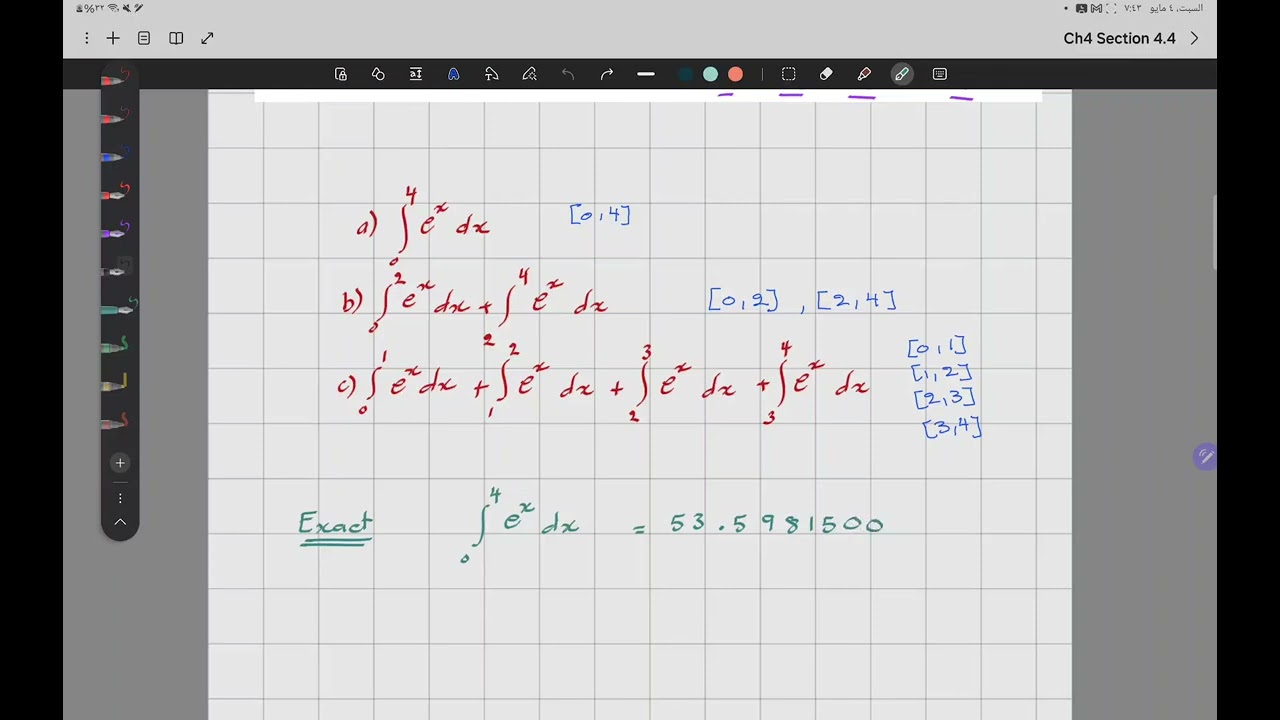 %٢٢ السبت، ٤ مايو ٧:٤٣
Ch4 Section 4.4
a) ∫₀⁴ eˣ dx [0,4]
b) ∫₀² eˣ dx + ∫₂⁴ eˣ dx [0,2] , [2,4]
c) ∫₀¹ eˣ dx + ∫₁² eˣ dx + ∫₂³ eˣ dx + ∫₃⁴ eˣ dx [0,1]
[1,2]
[2,3]
[3,4]
Exact ∫₀⁴ eˣ dx = 53.5981500